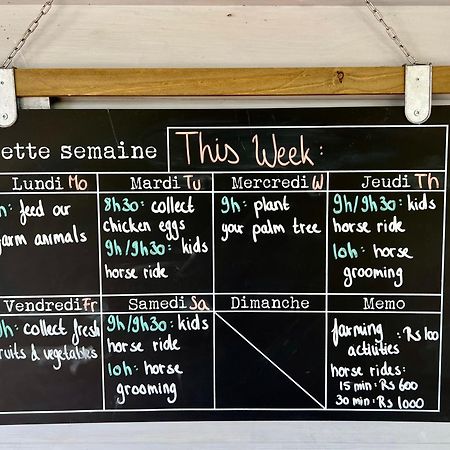 ette semaine
This Week:
Lundi Mo
h: feed our
arm animals
Mardi Tu
8h30: collect
chicken eggs
9h/9h30: kids
horse ride
Mercredi W
9h: plant
your palm tree
Jeudi Th
9h/9h30: kids
horse ride
10h: horse
grooming
Vendredi Fr
9h: collect fresh
ruits & vegetables
Samedi Sa
9h/9h30: kids
horse ride
10h: horse
grooming
Dimanche
Memo
farming
activities : Rs 100
horse rides:
15 min: Rs 600
30 min: Rs 1000